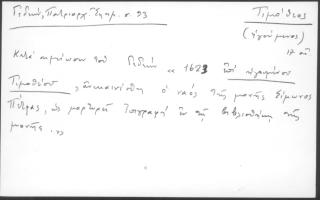 Γεδεών, Πατριαρχ. Ἐφημ. σ. 93
Τιμόθεος
(ἡγούμενος)
17 αἰ
Κατὰ σημείωσιν τοῦ Γεδεὼν « 1623 ἐπὶ ἡγουμένου
Τιμοθέου, ἀνεκαινίσθη ὁ ναὸς τῆς μονῆς Σίμωνος
Πέτρας, ὡς μαρτυρεῖ ἐπιγραφὴ ἐν τῇ βιβλιοθήκῃ τῆς
μονῆς. »